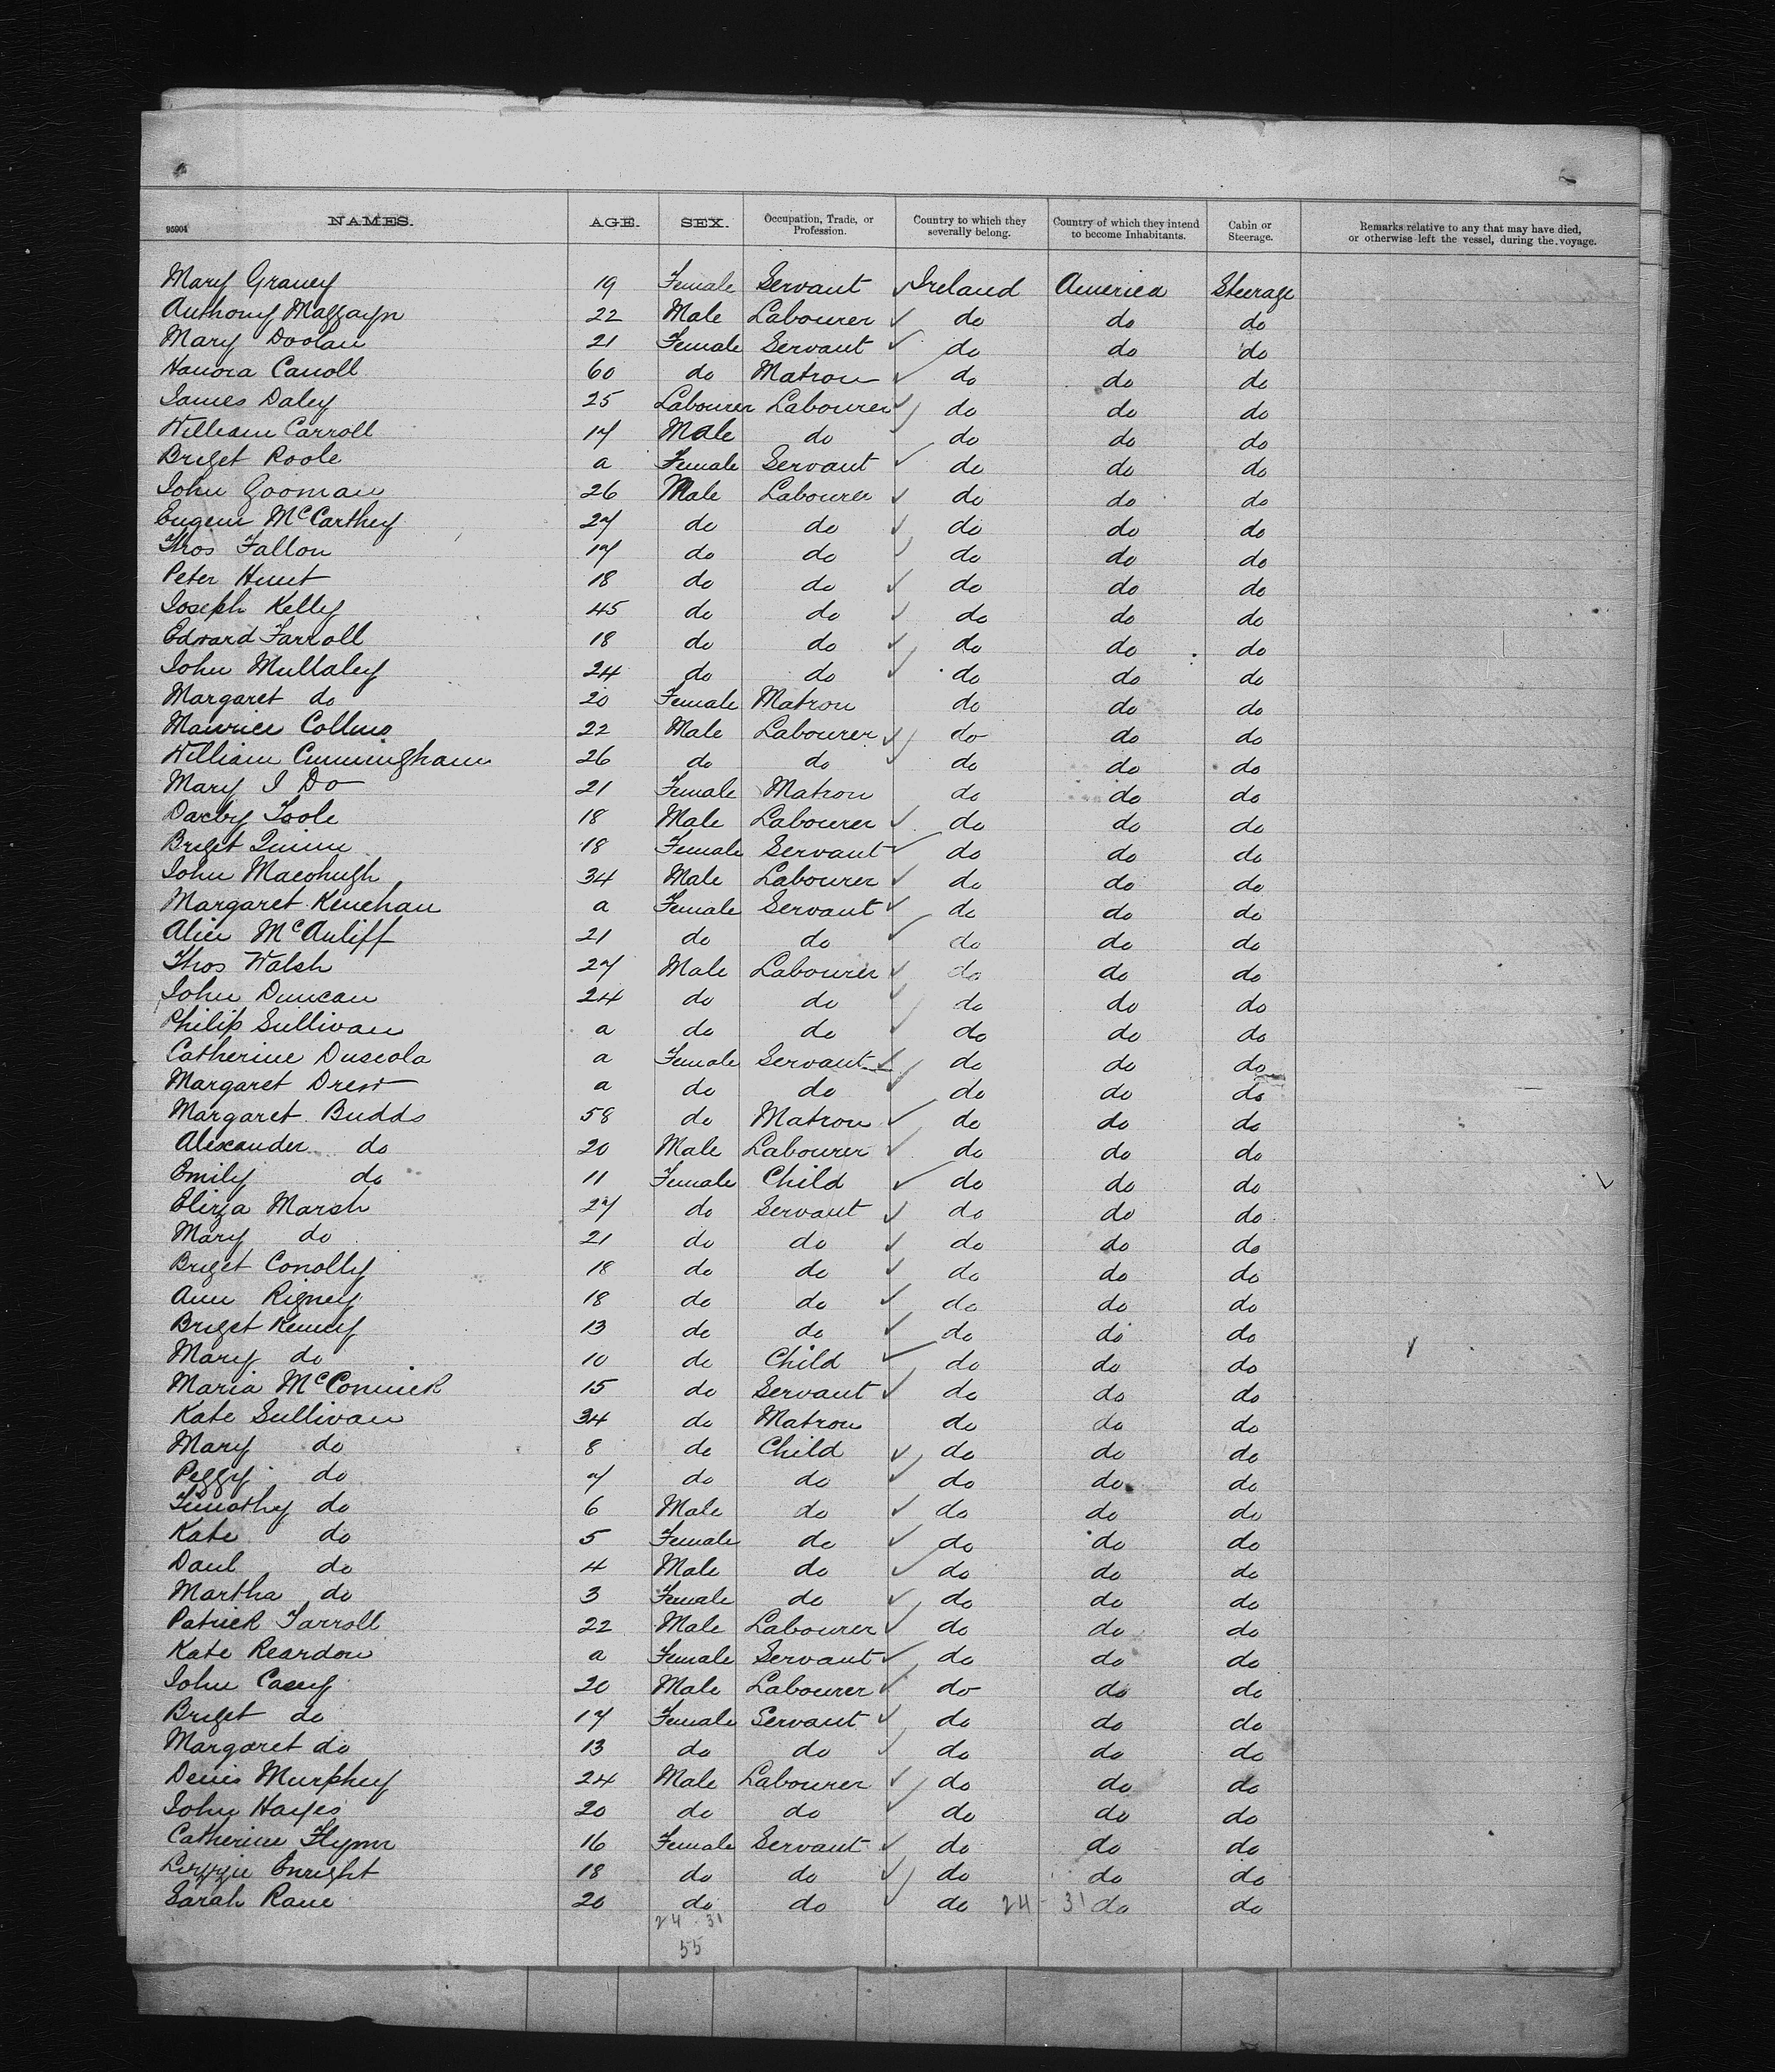 NAMES. AGE. SEX. Occupation, Trade, or Profession. Country to which they severally belong. Country of which they intend to become Inhabitants. Cabin or Steerage. Remarks relative to any that may have died, or otherwise left the vessel, during the voyage.
95904
Mary Graney 19 Female Servant Ireland America Steerage
Anthony 22 Male Labourer do do do
Mary Doolan 21 Female Servant do do do
Hanora Carroll 60 do Matron do do do
James Daley 25 Labourer Labourer do do do
William Carroll 17 Male do do do do
Briget Poole a Female Servant do do do
John Gooman 26 Male Labourer do do do
Eugene McCarthey 27 do do do do do
Thos Fallon 17 do do do do do
Peter Hunt 18 do do do do do
Joseph Kelly 45 do do do do do
Edward Farroll 18 do do do do do
John Mullaley 24 do do do do do
Margaret do 20 Female Matron do do do
Maurice Collins 22 Male Labourer do do do
William Cunningham 26 do do do do do
Mary J Do 21 Female Matron do do do
Darby Toole 18 Male Labourer do do do
Briget Quinn 18 Female Servant do do do
John Macohugh 34 Male Labourer do do do
Margaret Kenehan a Female Servant do do do
Alice McAuliff 21 do do do do do
Thos Walsh 27 Male Labourer do do do
John Duncan 24 do do do do do
Philip Sullivan a do do do do do
Catherine Duseola a Female Servant do do do
Margaret Drew a do do do do do
Margaret Budds 58 do Matron do do do
Alexander do 20 Male Labourer do do do
Emily do 11 Female Child do do do
Eliza Marsh 27 do Servant do do do
Mary do 21 do do do do do
Briget Conolly 18 do do do do do
Ann Rigney 18 do do do do do
Briget Kenny 13 do do do do do
Mary do 10 do Child do do do
Maria McConnick 15 do Servant do do do
Kate Sullivan 34 do Matron do do do
Mary do 8 do Child do do do
Peggy do 7 do do do do do
Timothy do 6 Male do do do do
Kate do 5 Female do do do do
Danl do 4 Male do do do do
Martha do 3 Female do do do do
Patrick Farroll 22 Male Labourer do do do
Kate Reardon a Female Servant do do do
John Casey 20 Male Labourer do do do
Briget do 17 Female Servant do do do
Margaret do 13 do do do do do
Denis Murphey 24 Male Labourer do do do
John Hayes 20 do do do do do
Catherine Flynn 16 Female Servant do do do
Lizzie Enright 18 do do do do do
Sarah Rane 20 do do do 24 - 31 do do
24 - 31
55